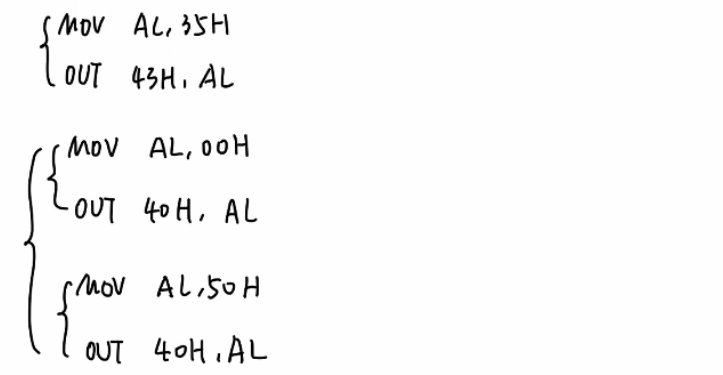 MOV AL, 35H
OUT 43H, AL
MOV AL, 00H
OUT 40H, AL
MOV AL, 50H
OUT 40H, AL